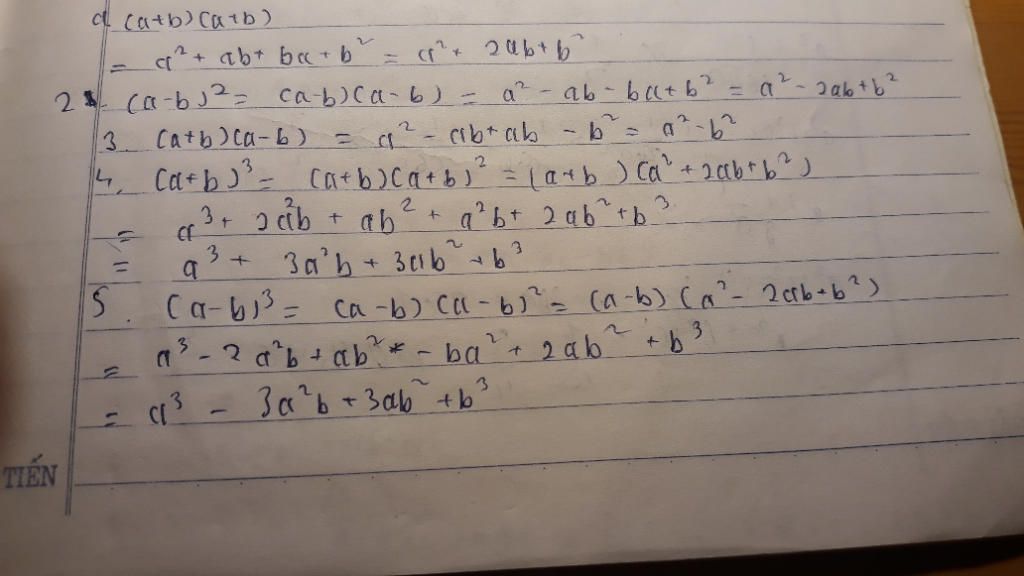 (a+b)(a+b)
= a² + ab + ba + b² = a² + 2ab + b²
2. (a-b)² = (a-b)(a-b) = a² - ab - ba + b² = a² - 2ab + b²
3. (a+b)(a-b) = a² - ab + ab - b² = a² - b²
4. (a+b)³ = (a+b)(a+b)² = (a+b)(a² + 2ab + b²)
= a³ + 2a²b + ab² + a²b + 2ab² + b³
= a³ + 3a²b + 3ab² + b³
5. (a-b)³ = (a-b)(a-b)² = (a-b)(a² - 2ab + b²)
= a³ - 2a²b + ab² - ba² + 2ab² + b³
= a³ - 3a²b + 3ab² + b³
TIẾN